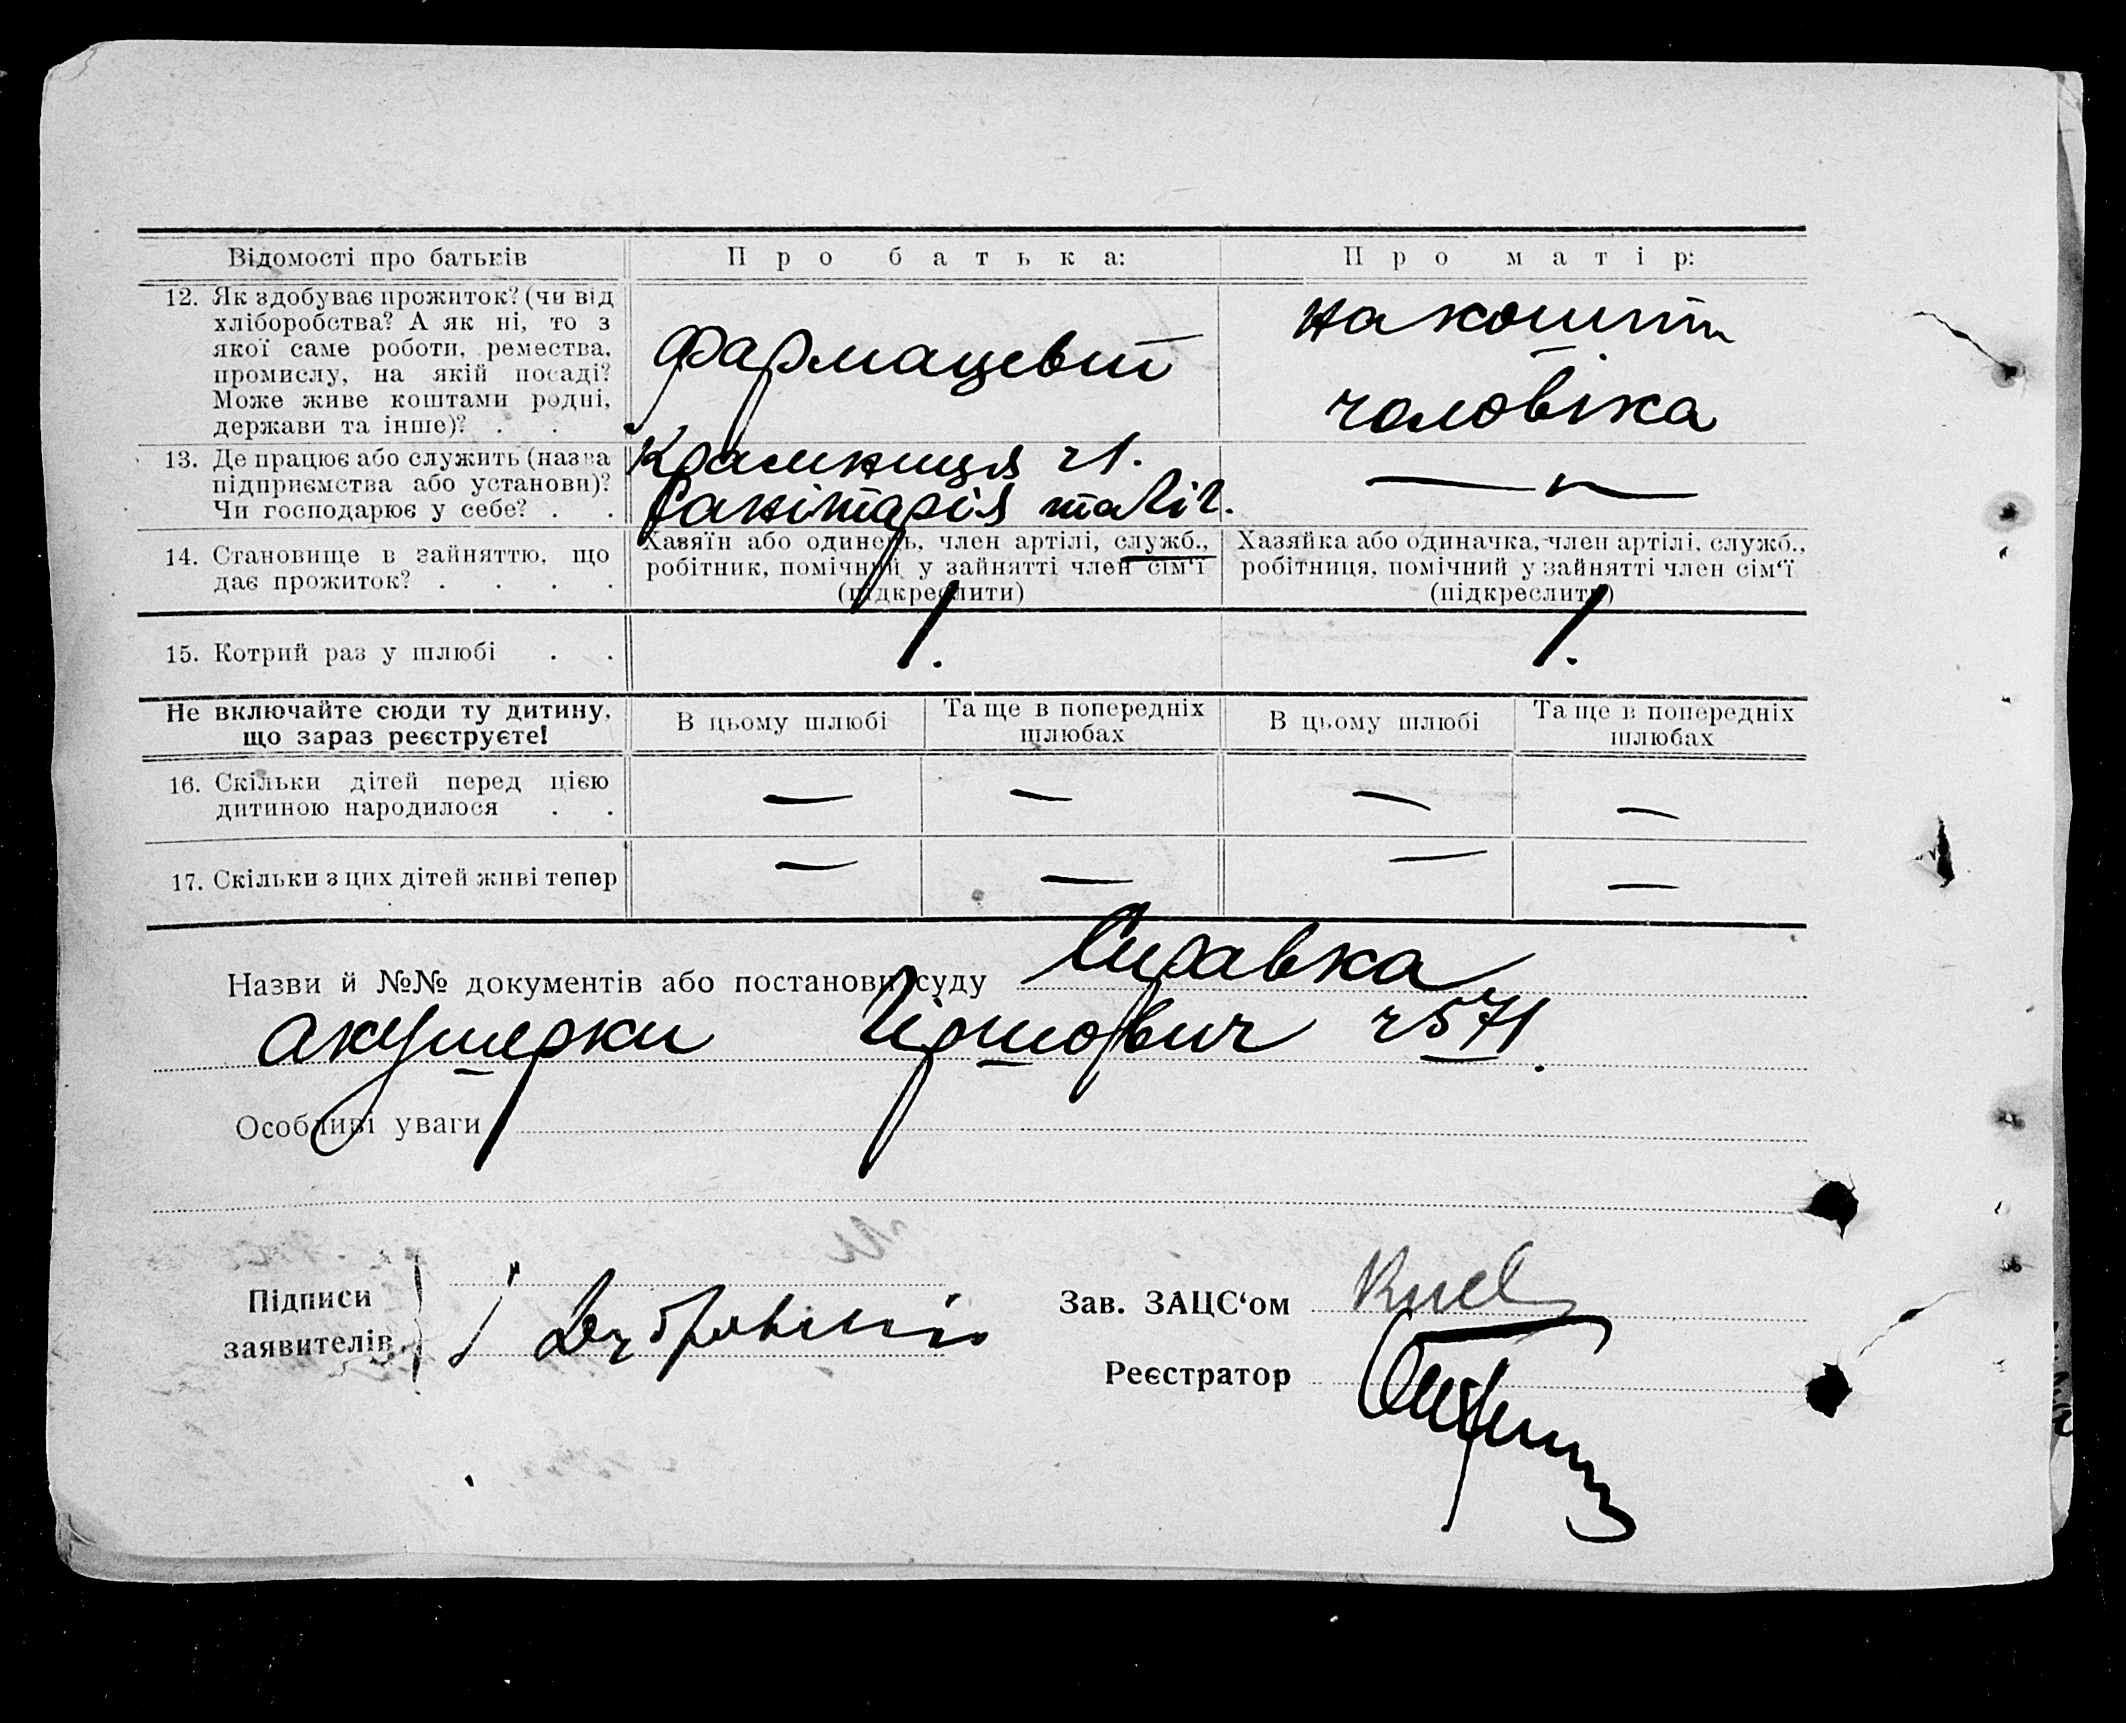 Відомості про батьків
Про батька:
Про матір:
12. Як здобуває прожиток? (чи від
хліборобства? А як ні, то з
якої саме роботи, ремества,
промислу, на якій посаді?
Може живе коштами родні,
держави та інше)? . .
фармацевт
на кошти
чоловіка
13. Де працює або служить (назва
підприємства або установи)?
Чи господарює у себе? . .
Крамниця ч1.
Санітарія та гіг.
— „ —
14. Становище в зайняттю, що
дає прожиток? . . . .
Хазяїн або одинець, член артілі, служб.,
робітник, помічний у зайнятті член сім‘ї
(підкреслити)
Хазяйка або одиначка, член артілі, служб.,
робітниця, помічний у зайнятті член сім‘ї
(підкреслити)
15. Котрий раз у шлюбі . .
1.
1.
Не включайте сюди ту дитину,
що зараз реєструєте!
В цьому шлюбі
Та ще в попередніх
шлюбах
В цьому шлюбі
Та ще в попередніх
шлюбах
16. Скільки дітей перед цією
дитиною народилося . .
— — — —
17. Скільки з цих дітей живі тепер
— — — —
Назви й №№ документів або постанови суду Справка
акушерки Гіршович ч571.
Особливі уваги
Підписи
заявителів
Зав. ЗАЦС‘ом
Реєстратор